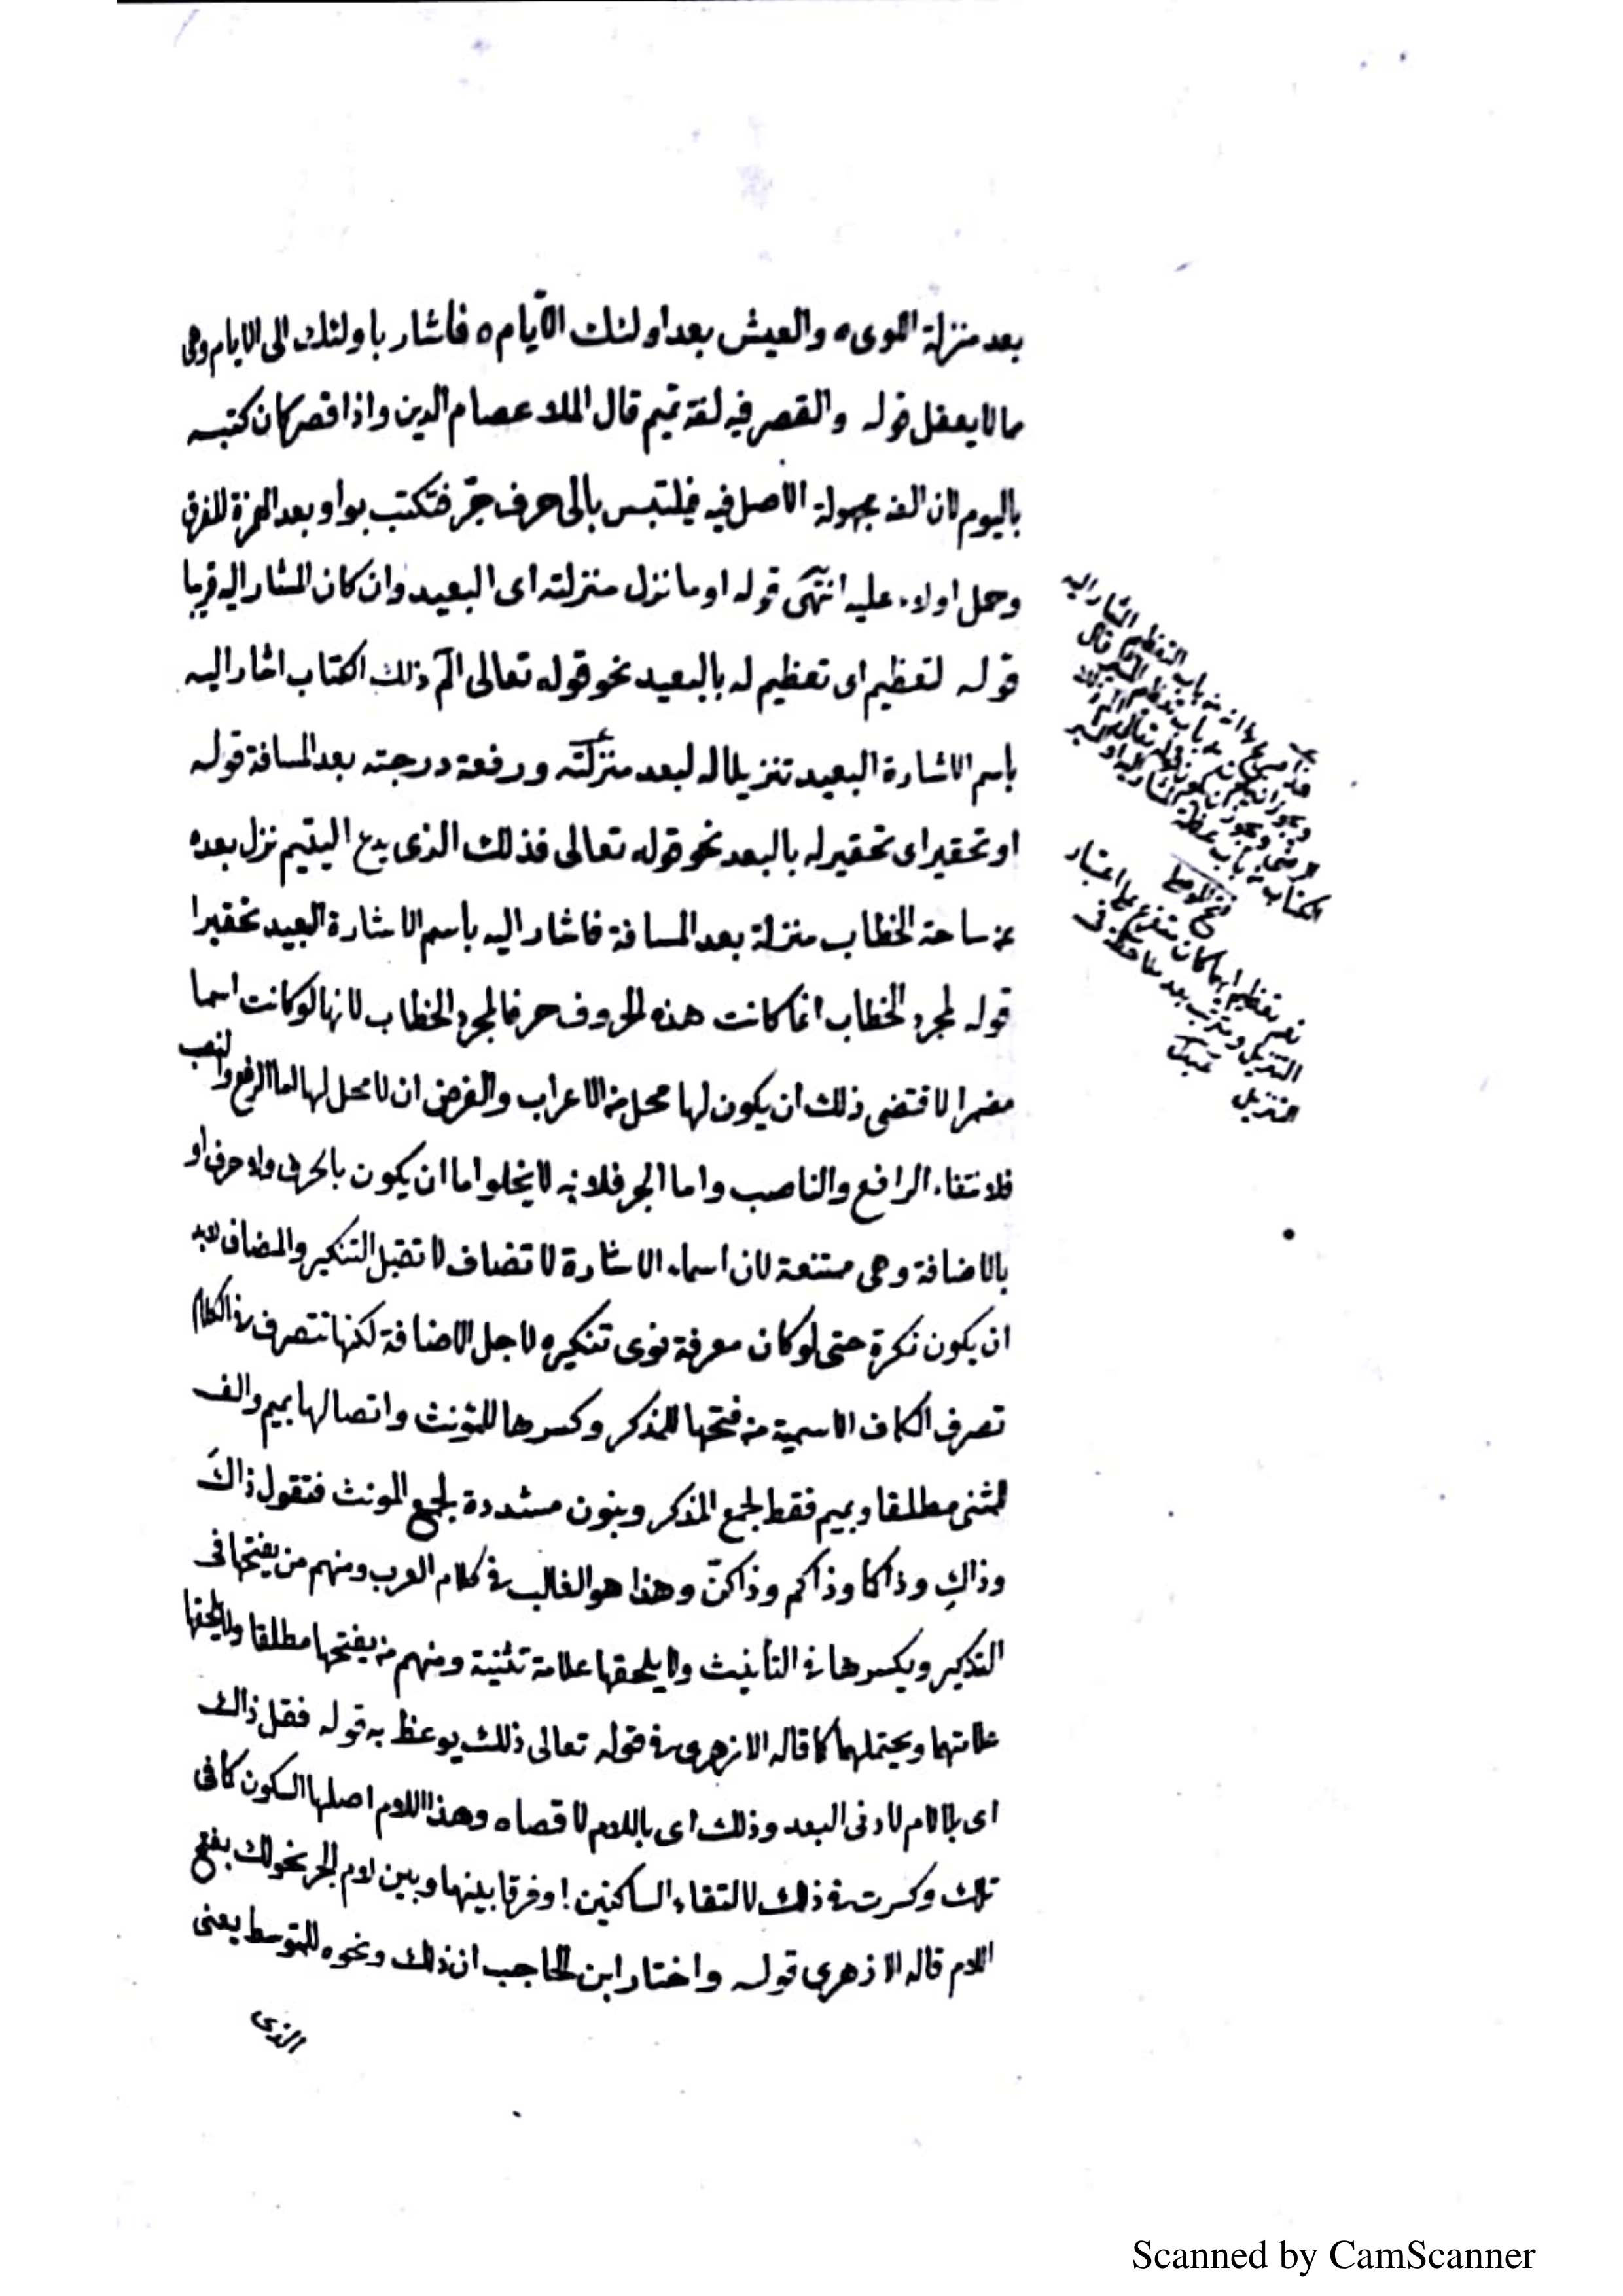 بعد منزلة اللوى ه والعيش بعد اولئك الأيام ه فاشار باولئك الى الايام وهى
ما لا يعقل قوله والقصر فيه لغة تميم قال الملا عصام الدين واذا قصر كان كتبه
بالان الفه مجهولة الاصل فيه فيلتبس بالى حرف جرّ فتكتب بواو بعد الهمزة للفرق
وحمل اولاء عليه انتهى قوله او ما نزل منزلته اى البعيد وان كان المشار اليه قريبا
قوله لتعظيم اى تعظيم له بالبعيد نحو قوله تعالى الم ذلك الكتاب اشار اليه
باسم الاشارة البعيد تنزيلا له لبعد منزلته ورفعة درجته بعد المسافة قوله
او تحقير اى تحقير له بالبعد نحو قوله تعالى فذلك الذى يدع اليتيم نزل بعده
عن ساحة الخطاب منزلة بعد المسافة فاشار اليه باسم الاشارة البعيد تحقيرا
قوله لمجرد الخطاب انما كانت هذه الحروف حرفا لمجرد الخطاب لانها لو كانت اسما
مضمرا لاقتضى ذلك ان يكون لها محل من الاعراب والفرض ان لا محل لها اما الرفع والنصب
فلانتفاء الرافع والناصب واما الجر فلانه لا يخلوا اما ان يكون بالحرف ولا حرف او
بالاضافة وهى ممتنعة لان اسماء الاشارة لا تضاف لا تقبل التنكير والمضاف لابد
ان يكون نكرة حتى لو كان معرفة نوى تنكيره لاجل الاضافة لكنها تتصرف فى الكلام
تصرف الكاف الاسمية من فتحها للمذكر وكسرها للمؤنث واتصالها بميم والف
لمثنى مطلقا وبميم فقط لجمع المذكر وبنون مشددة لجمع المونث فتقول ذاكَ
وذاكِ وذاكما وذاكم وذاكنّ وهذا هو الغالب فى كلام العرب ومنهم من يفتحها فى
التذكير ويكسرها فى التأنيث ولا يلحقها علامة تثنية ومنهم من يفتحها مطلقا ولا يلحقها
علامتهما ويحتملهما كما قاله الازهرى فى قوله تعالى ذلك يوعظ به قوله فقل ذاك
اى بلا لام لادنى البعد وذلك اى باللام لاقصاه وهذا اللام اصلها السكون كما فى
تلك وكسرت فى ذلك لالتقاء الساكنين ا وفرقا بينها وبين لام الجر نحو لك بفتح
اللام قاله الازهرى قوله واختار ابن الحاجب ان ذلك ونحوه للمتوسط يعنى
الذى
Scanned by CamScanner